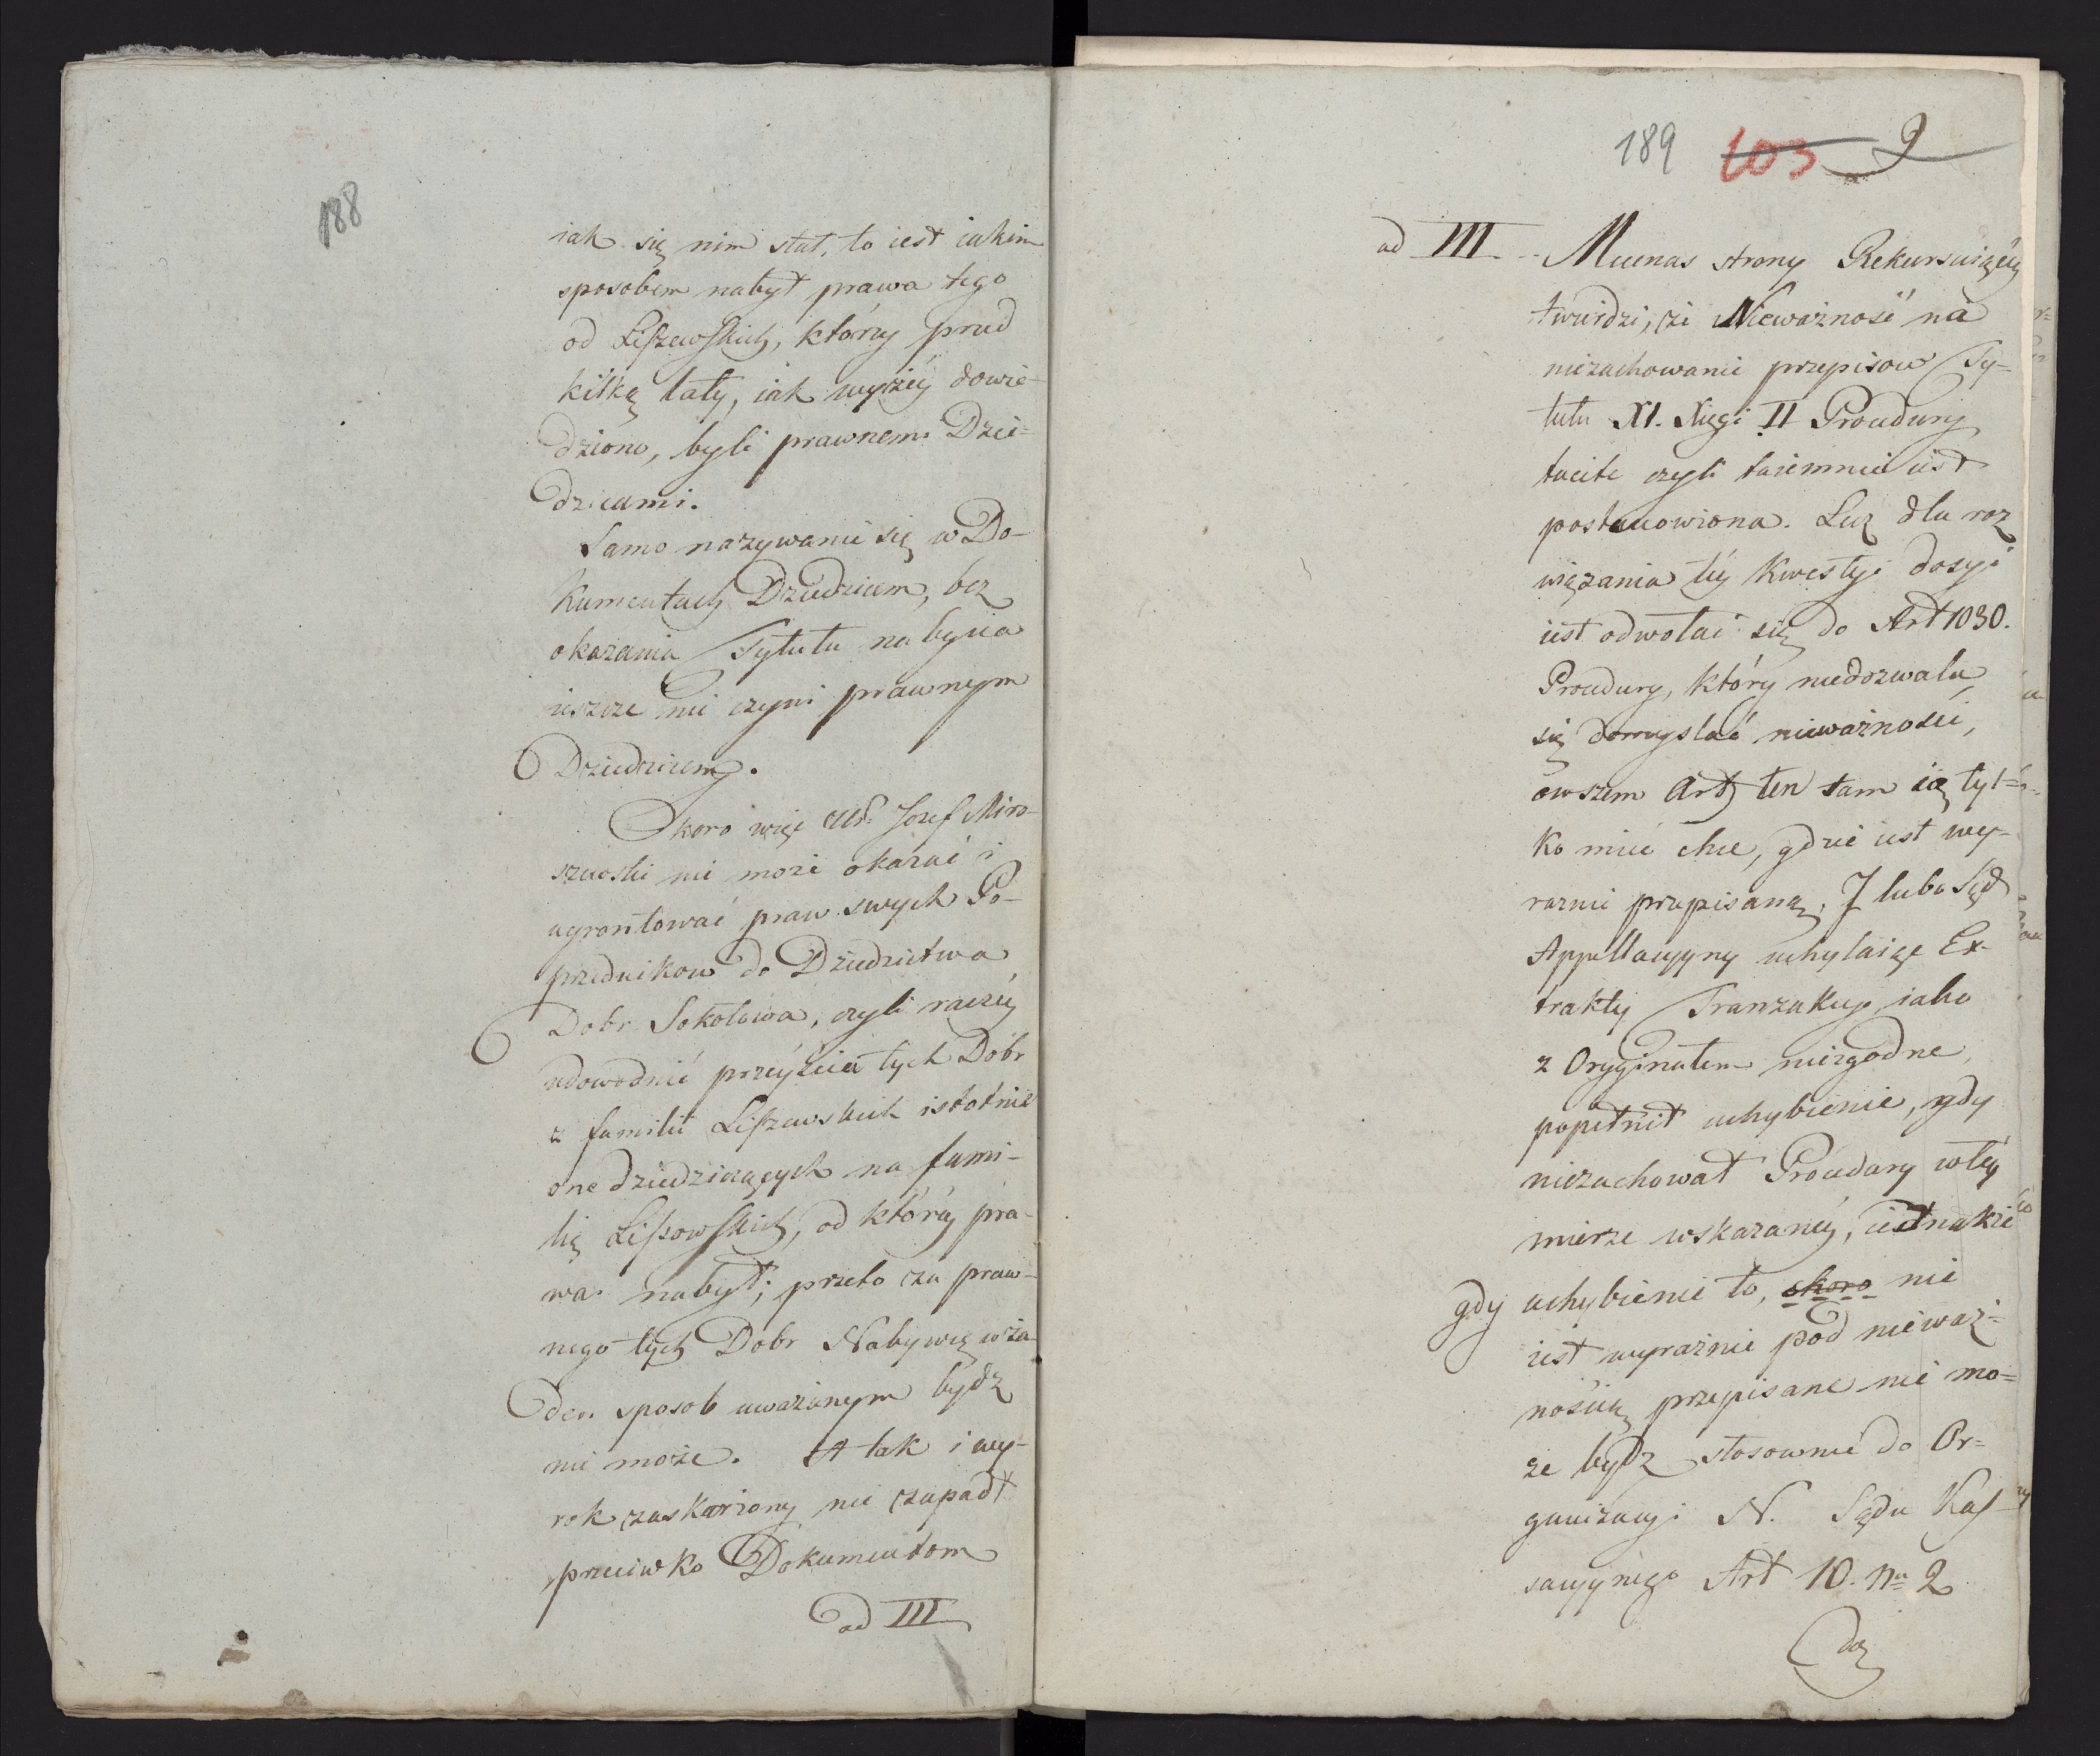 188
iak się nim stał, to iest iakim
sposobem nabył prawa tego
od Liszewskich, którzy przed
kilką laty, iak wyżéy dowie-
dziono, byli prawnemi Dzie-
dzicami.
Samo nazywanie się w Do-
kumentach Dziedzicem, bez
okazania Tytułu nabycia
ieszcze nie czyni prawnym
Dziedzicem.
Skoro więc Ur. Jozef Miro-
szewski nie może okazać i
ugrontować praw swych Po-
przednikow do Dziedzictwa
Dobr Sokołowa, czyli raczéy
udowodnić przeyścia tych Dobr
z familii Liszewskich istotnie
one dziedziczących na fami-
lię Lissowskich, od któréy pra-
wa nabył; przeto za praw-
nego tych Dobr Nabywcę w ża-
den sposob uważanym bydź
nie może. A tak i wy-
rok zaskarżony nie zapadł
przeciwko Dokumentom
ad III
189 103 9
ad III Mecenas strony Rekursuiącéy
twierdzi, że Nieważność na
niezachowanie przepisow Ty-
tułu XI. Xięgi II Procedury
tacite czyli taiemnie iest
postanowiona. Lecz dla roz
wiązania téy kwestyi dosyć
iest odwołać się do Art 1030.
Procedury, który niedozwala
się domyslać nieważności,
owszem Art ten tam ią tyl-
ko mieć chce, gdzie iest wy-
raznie przepisaną. J lubo Sąd
Appellacyyny uchylaiąc Ex-
trakty Tranzakcyi iako
z Oryginałem niezgodne,
popełnił uchybienie, gdy
niezachował Procedury w téy
mierze wskazanéy, iednakże
gdy uchybienie to, skoro nie
iest wyraźnie pod nieważ-
nością przepisane nie mo-
że bydź stosownie do Or-
ganizacyi N. Sądu Kas-
sacyynego Art 10. Nr 2